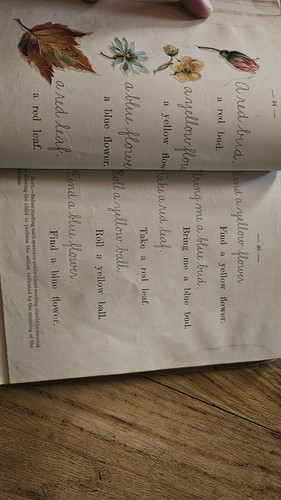 — 84 —
A red bud.
a red bud.
a yellow flow
a yellow flow
a blue flower
a blue flower.
a red leaf
a red leaf.
— 85 —
Find a yellow flower
Find a yellow flower.
Bring me a blue bud
Bring me a blue bud.
Take a red leaf.
Take a red leaf.
Roll a yellow ball.
Roll a yellow ball.
Find a blue flower
Find a blue flower.